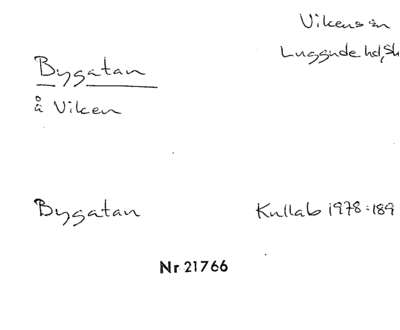 Vikens sn
Luggude hd, Sk
Bygatan
å Viken
Bygatan
Kullab 1978:189
Nr 21766